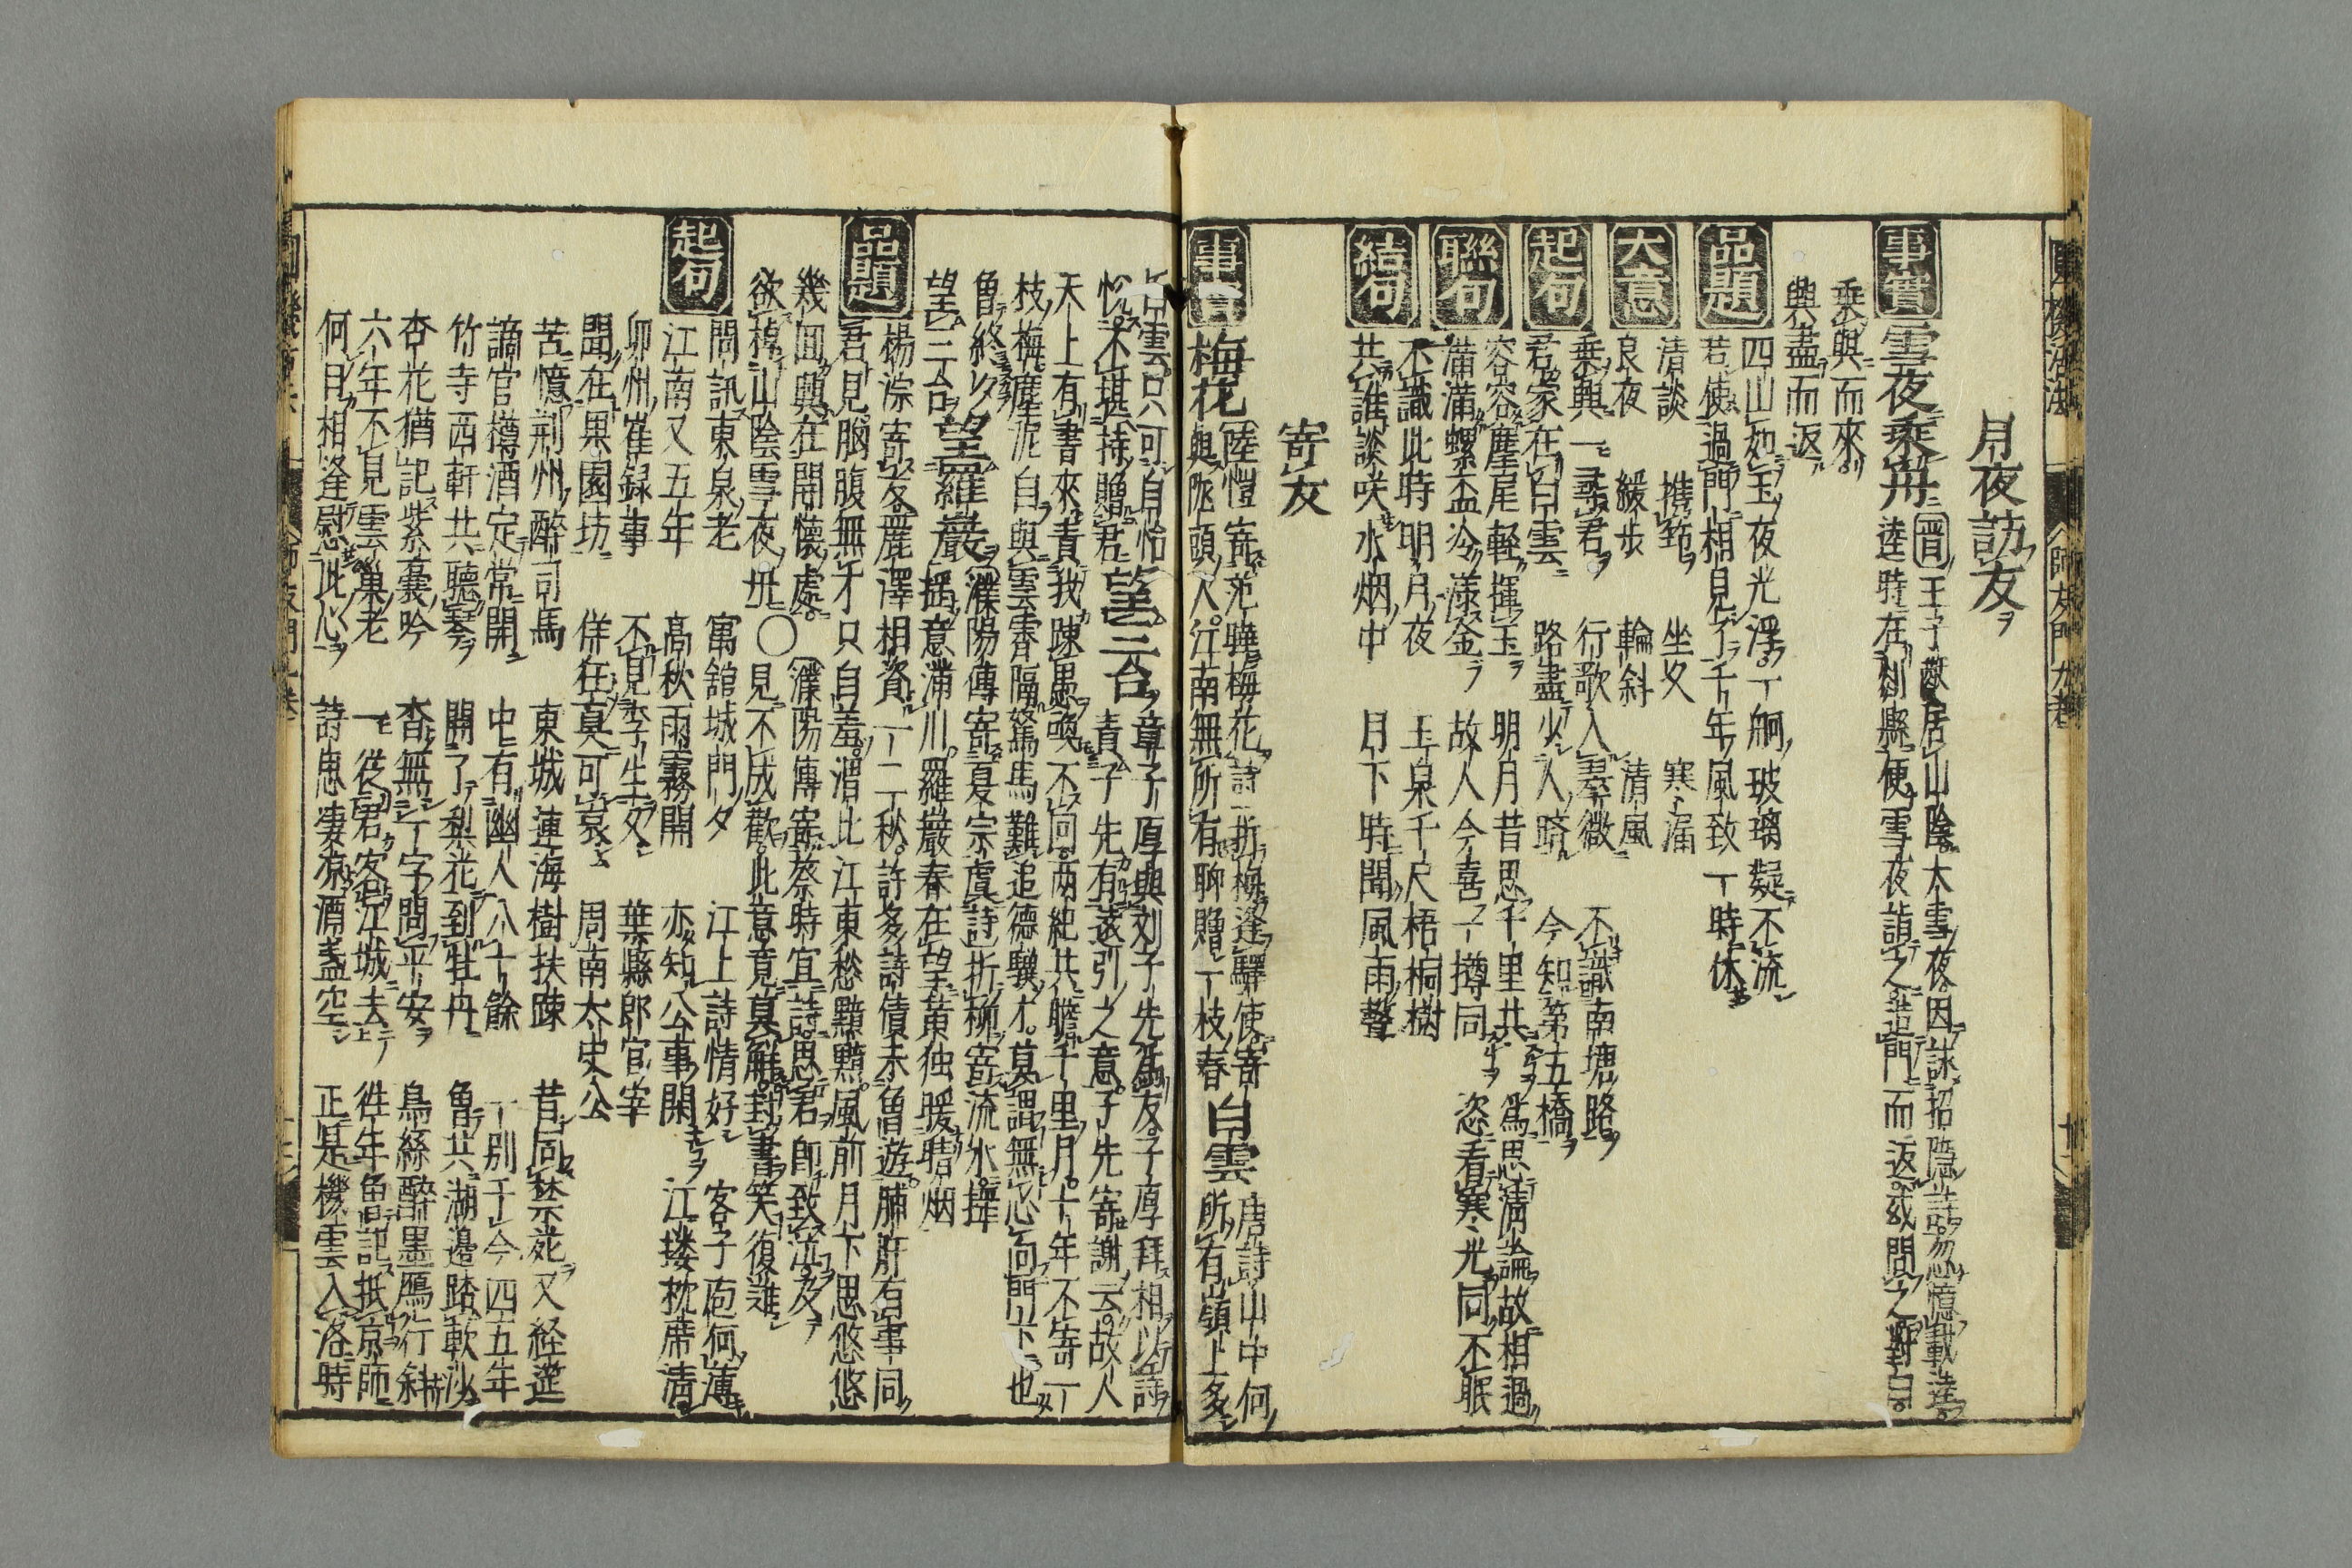 月夜訪友
事實 雪夜乗舟 晋王子猷居山陰大雪夜因詠招隱詩忽憶戴逵
逵時在剡縣便雪夜詣之造門而返或問之對曰
乘興而來
興盡而返
品題 四山如玉夜光浮一舸玻璃凝不流
若使過門相見了千年風致一時休
大意 清談 携筇 坐久 寒漏
良夜 緩歩 輪斜 清風
起句 乗興一尋君 行歌入翠微 不識南塘路
君家在白雲 路盡少人疇 今知第五橋
聯句 容容麈尾輕揮玉 明月昔思千里共 為思清論故相過
滿滿螺盃冷漾金 故人今喜一樽同 恣看寒光同不眠
結句 不識此時明月夜 玉泉千尺梧桐樹
共誰談咲水烟中 月下時聞風雨聲
寄友
事實 梅花 陸愷寄范曄梅花詩折梅逢驛使寄
與隴頭人江南無所有聊贈一枝春 白雲 唐詩山中何
所有嶺上多
白雲只可自怡
悅不堪持贈君 望三台 章子厚與刘子先為友子厚拜相以詩
責子先有遠引之意子先寄謝云故人
天上有書來責我踈愚喚不回兩地共瞻千里月十年不寄一
枝梅塵泥自與雲霄隔駑馬難追德驥才莫謂無心向門下也
曾終夕
望三台 望羅巖 濮陽傳寄夏宗虞詩折柳寄流水揖
揺意滿川羅巖春在望黄独暖晴烟
品題 楊淙寄友麗澤相資一二秋許多詩債未曾遊肺肝若事同
君見胸腹無才只自羞渭北江東愁黯黯風前月下思悠悠
幾回興在開懷處 濮陽傳寄蔡時宜詩思君即致泣及
欲棹山陰雪夜世○見不成歡此意竟莫解封書笑復難
起句 問訊東泉老 寓舘城門夕 江上詩情好 客子庖何薄
江南又五年 高秋雨霧開 亦知公事閑 江楼枕席清
卯州崔録事 不見李生久 葉縣郎官宰
聞在果園坊 佯在真可哀 周南太史公
苦憶荊州醉司馬 東城連海樹扶踈 昔同禁苑又経遊
謫官樽酒定常開 中有幽人八十餘 一別于今四五年
竹寺西軒共聽琴 開了梨花到牡丹 曾共湖邉踏軟沙
杏花猶記紫囊吟 杳無一字問平安 烏絲醉墨鴈行斜
六年不見雲巢老 一從君客江城去 往年曾記抵京師
何日相逢慰此心 詩思凄凉酒盞空 正是機雲入洛時